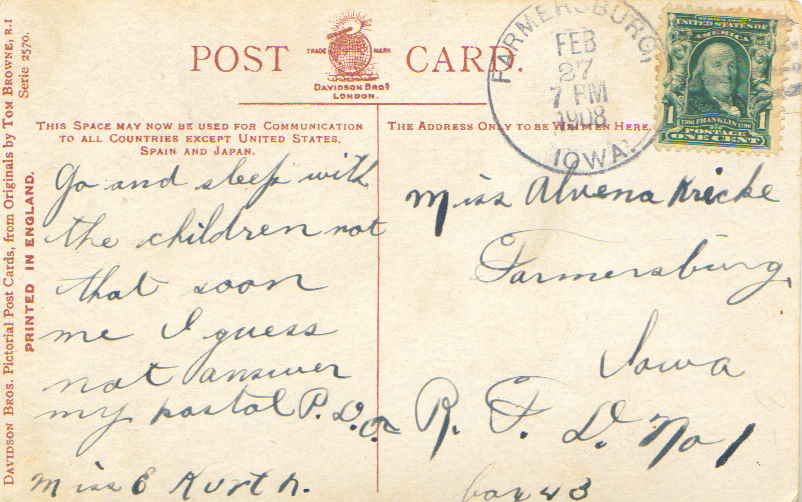 DAVIDSON BROS. PICTORIAL POST CARDS, FROM ORIGINALS BY TOM BROWNE, R.I
SERIE 2570.
PRINTED IN ENGLAND.
POST CARD.
TRADE MARK
DAVIDSON BROS
LONDON.
THIS SPACE MAY NOW BE USED FOR COMMUNICATION
TO ALL COUNTRIES EXCEPT UNITED STATES,
SPAIN AND JAPAN.
Go and sleep with
the children not
that soon
me I guess
not answer
my postal P.D.Q.
Miss E Kurth.
THE ADDRESS ONLY TO BE WRITTEN HERE.
FARMERSBURG,
FEB
27
7 PM
1908
IOWA.
UNITED STATES OF
AMERICA
1 FRANKLIN 1
POSTAGE
ONE CENT
Miss Alvena Kricke
Farmersburg,
Iowa
R. F. D. No 1
box 43